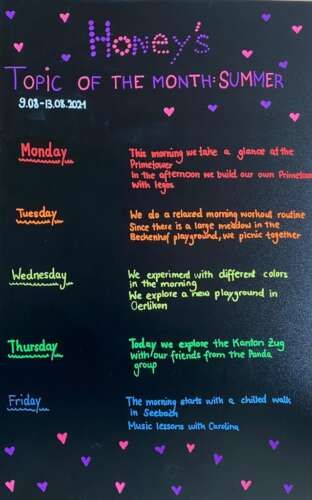 Honey's
Topic of the month: Summer
9.08-13.08.2021
Monday
This morning we take a glance at the
Primetower
In the afternoon we build our own Primetower
with legos
Tuesday
We do a relaxed morning workout routine
Since there is a large meadow in the
Beckenhof playground, we picnic together
Wednesday
We experiment with different colors
in the morning
We explore a new playground in
Oerlikon
Thursday
Today we explore the Kanton Zug
with our friends from the Panda
group
Friday
The morning starts with a chilled walk
in Seebach
Music lessons with Carolina